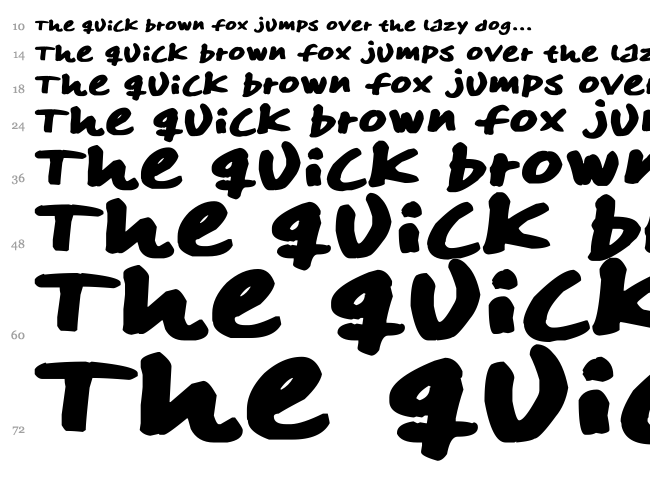 10 The quick brown fox jumps over the lazy dog...
14 The quick brown fox jumps over the laz
18 The quick brown fox jumps over
24 The quick brown fox ju
36 The quick brown
48 The quick b
60 The quick
72 The quic